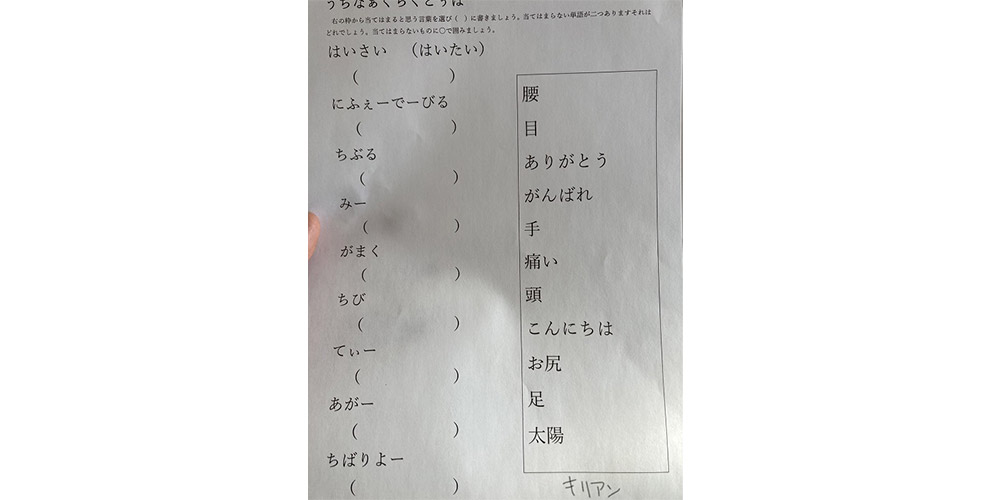 右の枠から当てはまると思う言葉を選び（　）に書きましょう。当てはまらない単語が二つありますそれは
どれでしょう。当てはまらないものに○で囲みましょう。
はいさい　（はいたい）
（　　　　　）
にふぇーでーびる
（　　　　　）
ちぶる
（　　　　　）
みー
（　　　　　）
がまく
（　　　　　）
ちび
（　　　　　）
てぃー
（　　　　　）
あがー
（　　　　　）
ちばりよー
（　　　　　）
腰
目
ありがとう
がんばれ
手
痛い
頭
こんにちは
お尻
足
太陽
キリアン